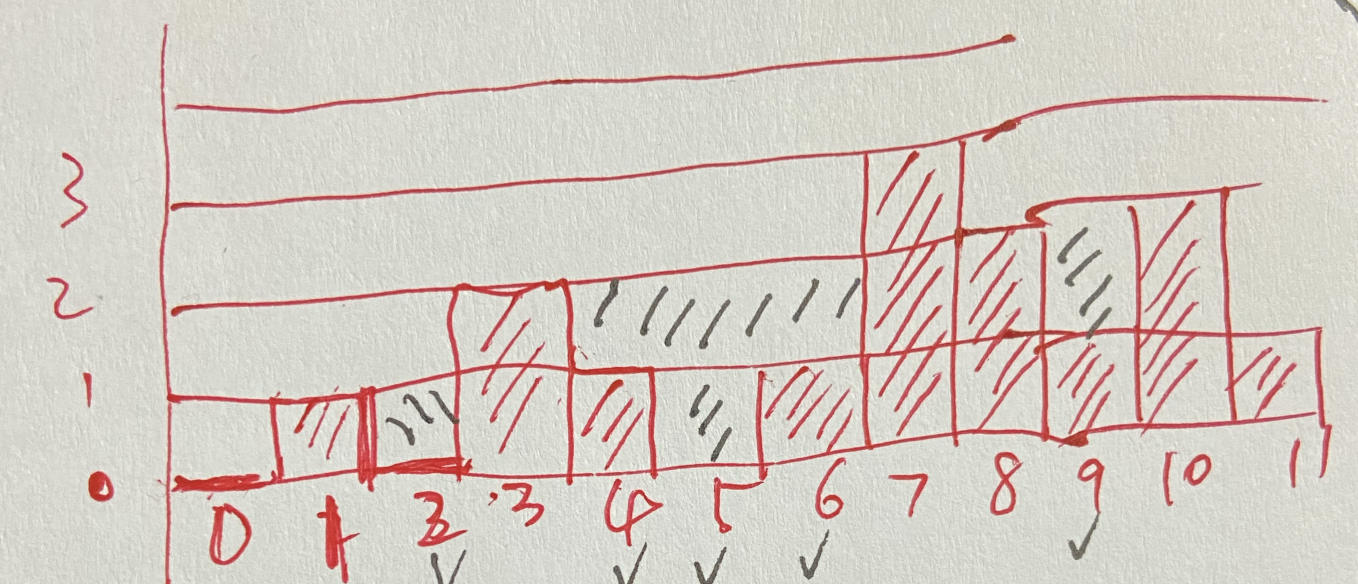 3
2
1
0
0 1 2 3 4 5 6 7 8 9 10 11